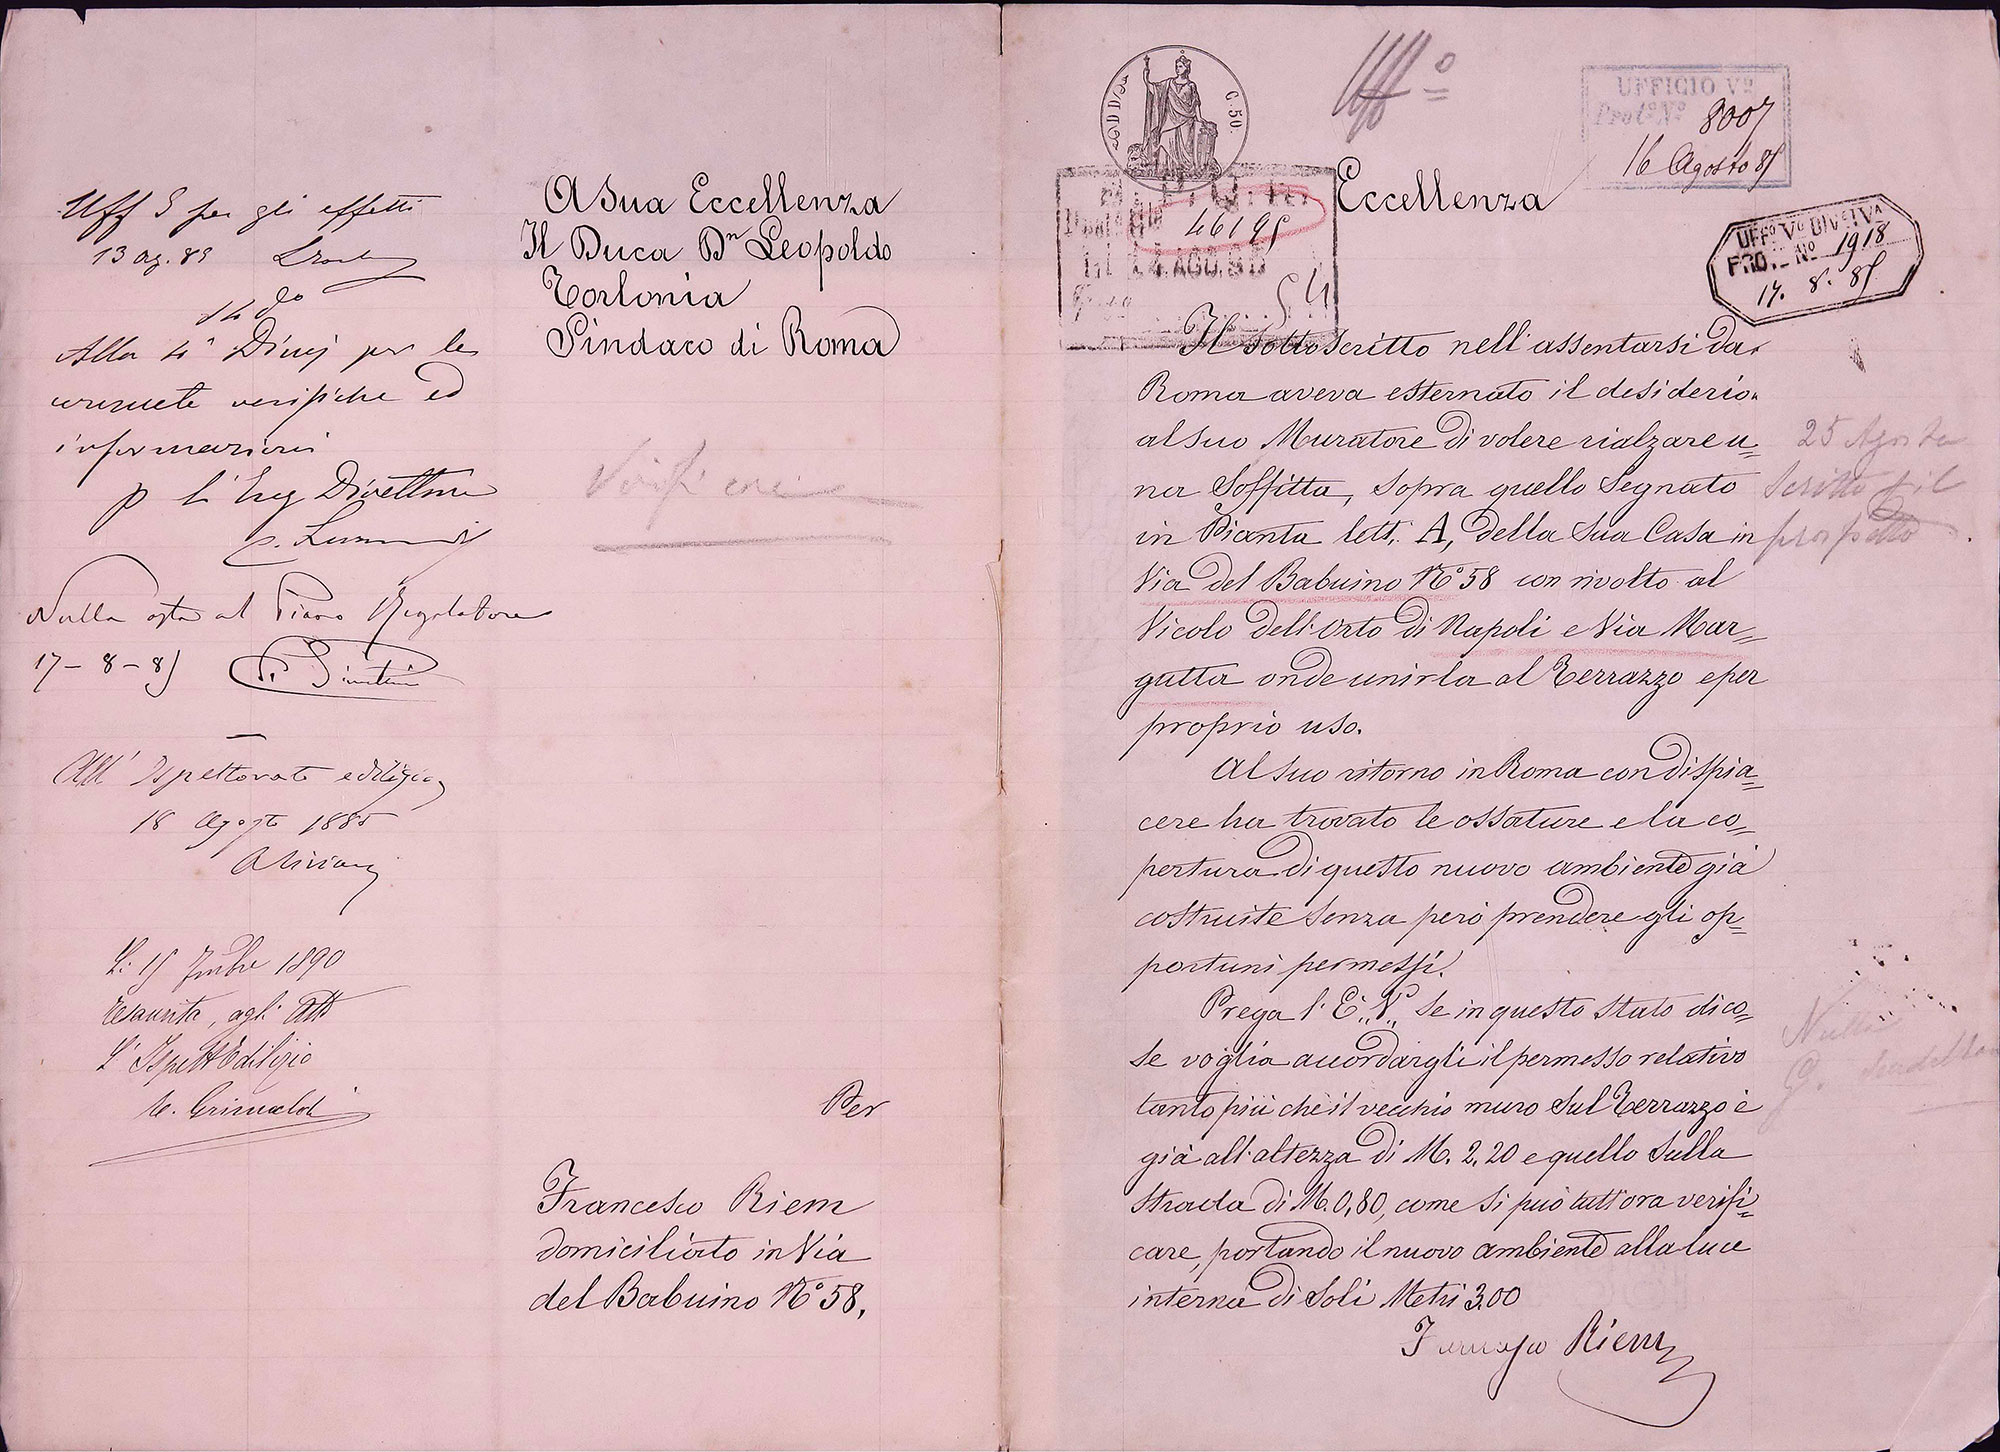 Uff 5 per gli effetti
13 ag. 85
14 do
Alla 4ª Divis per le
consuete verifiche ed
informazioni
p l'Ing Direttore
Nulla osta al Piano Regolatore
17-8-85
All' Ispettorato edilizio
18 Agosto 1885
Li 15 1890
Esaurita, agli Atti
L'Ispett Edilizio
Grimaldi
A Sua Eccellenza
Il Duca Dn Leopoldo
Torlonia
Sindaco di Roma
Per
Francesco Riem
domiciliato in Via
del Babuino No 58,
C. 50.
Uff o
UFFICIO Vo
Prot.o No 8007
16 Agosto 85
46195
14 AGO. 85
54
UFFo Vo DIV.e IVa
PROT. No 1918
17. 8. 85
Eccellenza
Il Sottoscritto nell'assentarsi da
Roma aveva esternato il desiderio
al suo Muratore di volere rialzare u=
na Soffitta, sopra quello Segnato
in Pianta lett. A, della Sua Casa in
Via del Babuino No 58 con rivolto al
Vicolo dell'Orto di Napoli e Via Mar=
gutta onde unirla al Terrazzo e per
proprio uso.
Al suo ritorno in Roma con dispia=
cere ha trovato le ossature e la co=
pertura di questo nuovo ambiente già
costruite senza però prendere gli op=
portuni permessi.
Prega l'E. V. se in questo stato di co=
se voglia accordargli il permesso relativo
tanto più che il vecchio muro sul Terrazzo è
già all'altezza di M. 2,20 e quello sulla
strada di M. 0,80, come si può tutt'ora verifi=
care, portando il nuovo ambiente alla luce
interna di soli Metri 3,00
Francesco Riem
25 Agosto
Scritto p il
prospetto